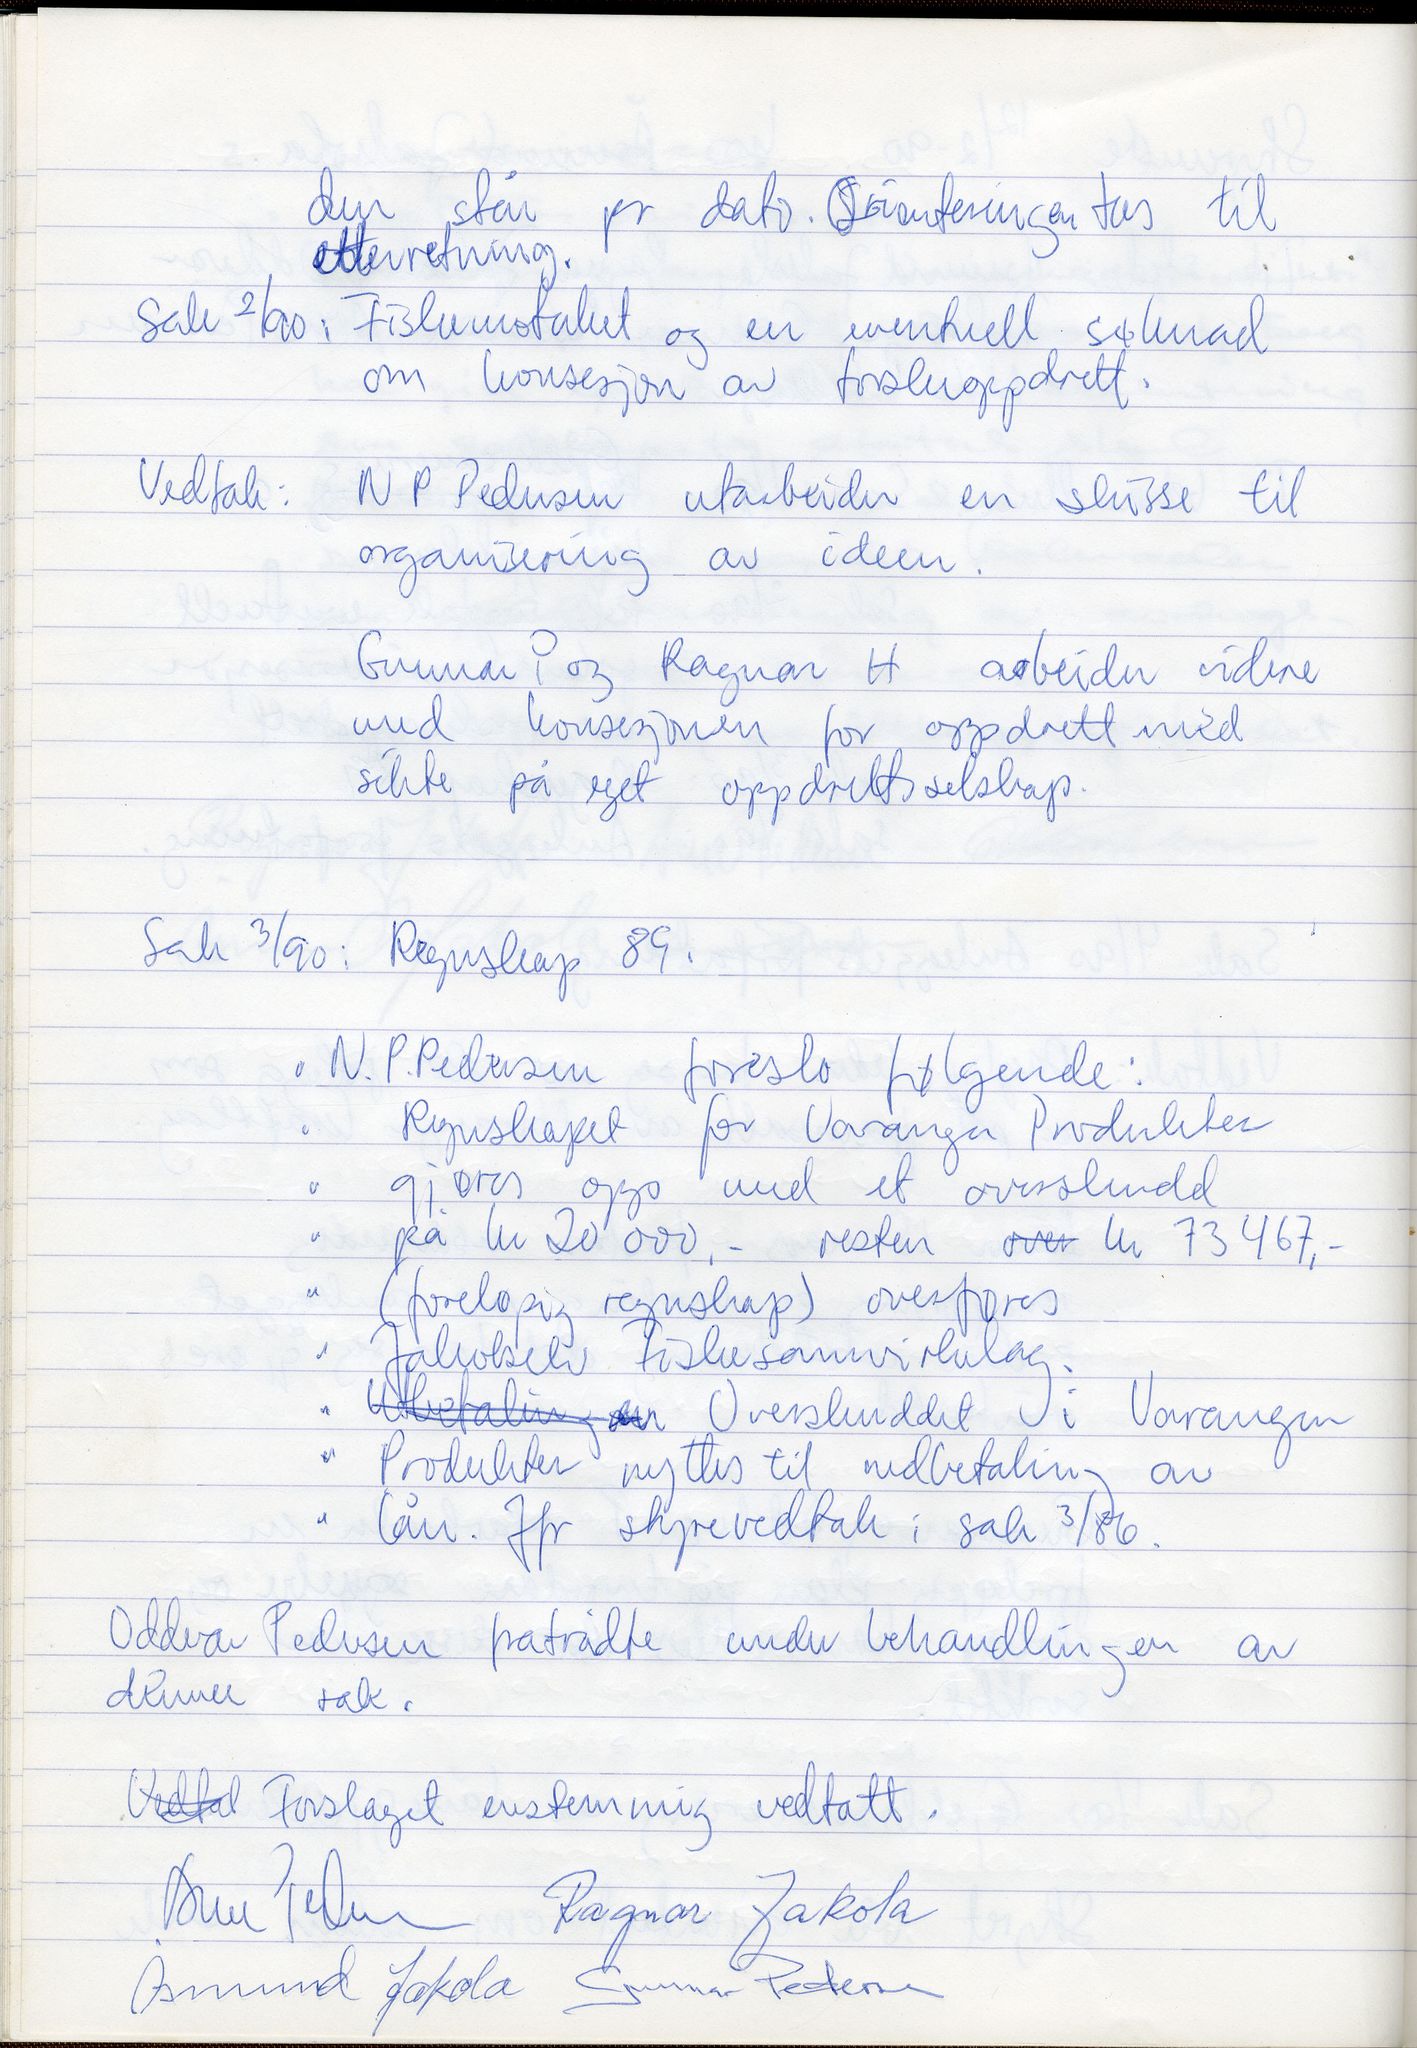 den står pr dato. Orienteringen tas til
etterretning.
Sak 2/90: Fiskemotaket og en eventuell søknad
om konsesjon av torskeoppdrett.
Vedtak: N P Pedersen utarbeider en skisse til
organisering av ideen.
Gunnar P og Ragnar H arbeider videre
med konsesjonen for oppdrett med
sikte på eget oppdrettsselskap.
Sak 3/90: Regnskap 89.
" N. P. Pedersen foreslo følgende:
" Regnskapet for Varanger Produkter
" gjøres opp med et overskudd
" på kr 20 000,- resten over kr 73 467,-
" (foreløpig regnskap) overføres
" Jakobselv Fiskesamvirkelag.
" Utbetalingen Overskuddet i Varanger
" Produkter nyttes til nedbetaling av
" lån. Jfr styrevedtak i sak 3/86.
Oddvar Pedersen fratrådte under behandlingen av
denne sak.
Vedtak Forslaget enstemmig vedtatt.
Ragnar Jakola
Åsmund Jakola Gunnar Pedersen